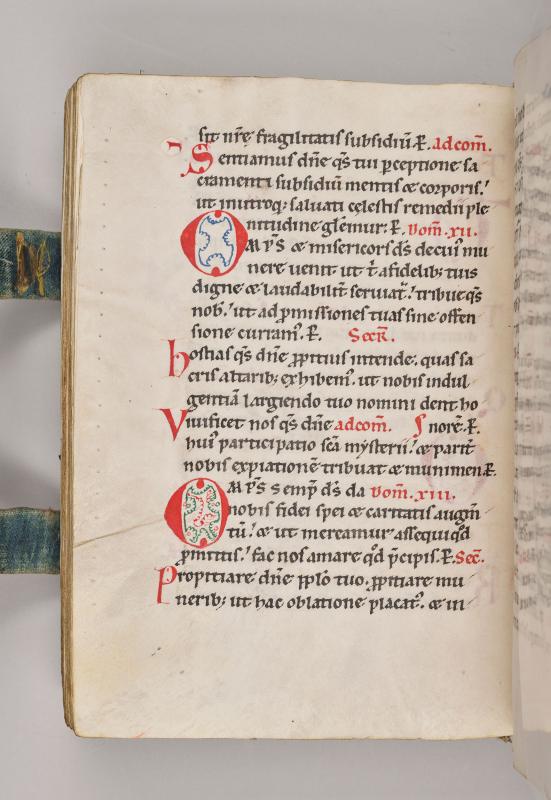 sit nr̄ę fragilitatis subsidiū. P̄. adcom̄.
Sentiamus dn̄e qs̄ tui ꝑceptione sa
cramenti subsidiū mentis & corporis.'
ut inutroq; saluati cęlestis remedii ple
nitudine glēmur. P̄. Dom̄. xii.
OMPS̄ & misericors ds̄ decui' mu
nere uenit ut t̄ afidelib; tuis
digne & laudabilit̄ seruiat̄.' tribue qs̄
nob̄.' ut ad ꝓmissiones tuas sine offen
sione curram'. P̄. Secr̄.
hostias qs̄ dn̄e ꝓpitius intende. quas sa
cris altarib; exhibem'. ut nobis indul
gentiā largiendo tuo nomini dent ho
Viuificet nos qs̄ dn̄e adcom̄. norē. P̄.
hui' participatio sc̄a mysterii.' & parit̄
nobis expiationē tribuat & munimen. P̄.
OMPS̄ sempr̄ ds̄ da Dom̄. xiii.
nobis fidei spei & caritatis augm̄
tū.' & ut mereamur assequi qd̄
ꝓmittis.' fac nos amare qd̄ p̄cipis. P̄. Sec̄.
Propitiare dn̄e pplō tuo. ꝓpitiare mu
nerib; ut hac oblatione placat'. & in